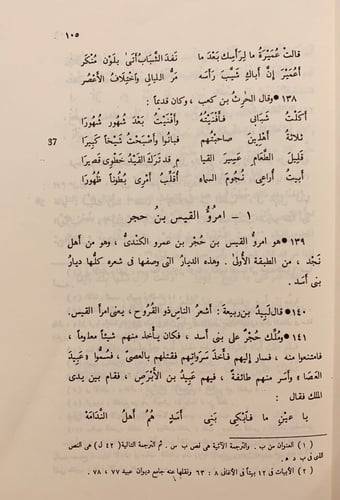 ١٠٥
قالتْ عُمَيْرَةُ ما لِرَأْسِكَ بَعْدَ ما نَفَدَ الشَّبَابُ أَتَى بلَوْنٍ مُنْكَرِ
أَعُمَيْرَ إِنَّ أَباكِ شَيَّبَ رَأْسَه مَرُّ الليالِى وَاخْتِلافُ الأَعْصُرِ
١٣٨ • وقال الحٰرثُ بن كعب ، وكان قديماً :
أَكَلْتُ شَبَابِى فأَفْنَيْتُهُ وأَفْنَيْتُ بَعْدَ شُهُورٍ شُهُورَا
ثلاثةُ أَهْلِينَ صاحَبْتُهم فبانُوا وأَصْبَحْتُ شَيْخاً كَبِيرَا 37
قَلِيلَ الطَّعَامِ عَسِيرَ القِيا مِ قد تَرَكَ القَيْدُ خَطْوِى قَصِيرَا
أَبِيتُ أُراعِى نُجُومَ السماء أُقَلِّبُ أَمْرِى بُطُوناً ظُهُورَا
١ – امرُؤُ القيس بنُ حجر
١٣٩ • هو امرؤ القيس بن حُجْر بن عمرو الكندىُّ ، وهو من أهل
نَجْد ، من الطبقة الأُولَى . وهذه الديار التى وصفها فى شعره كلُّها ديارُ
بنى أَسد .
١٤٠ • قال لَبِيدُ بن رَبيعةَ : أَشعرُ الناسِ ذو القُرُوح ، يعنى امرأَ القيس .
١٤١ • ومُلِّك حُجْرٌ على بنى أسد ، فكان يأْخذ منهم شيئاً معلوماً ،
فامتنعوا منه ، فسار إليهم فأَخذَ سَرَوَاتِهم فقتلهم بالعصىّ ، فسُمُّوا « عَبِيدَ
العَصَا » وأَسَر منهم طائفةً ، فيهم عَبِيدُ بن الأَبْرَص ، فقام بين يدى
الملك فقال :
يا عَيْنِ ما فَابْكِى بَنِى أَسَدٍ هُمُ أَهلُ النَّدَامَهْ
( ١ ) العنوان من ب . والترجمة الآتية هى نص ب س . ثم الترجمة التالية ( ٤٢ ل ) هى النص
الذى فى ب د هـ .
( ٢ ) الأبيات فى ١٢ بيتاً فى الأغانى ٨ : ٦٣ ونقلها عنه جامع ديوان عبيد ٧٧ ، ٧٨ .